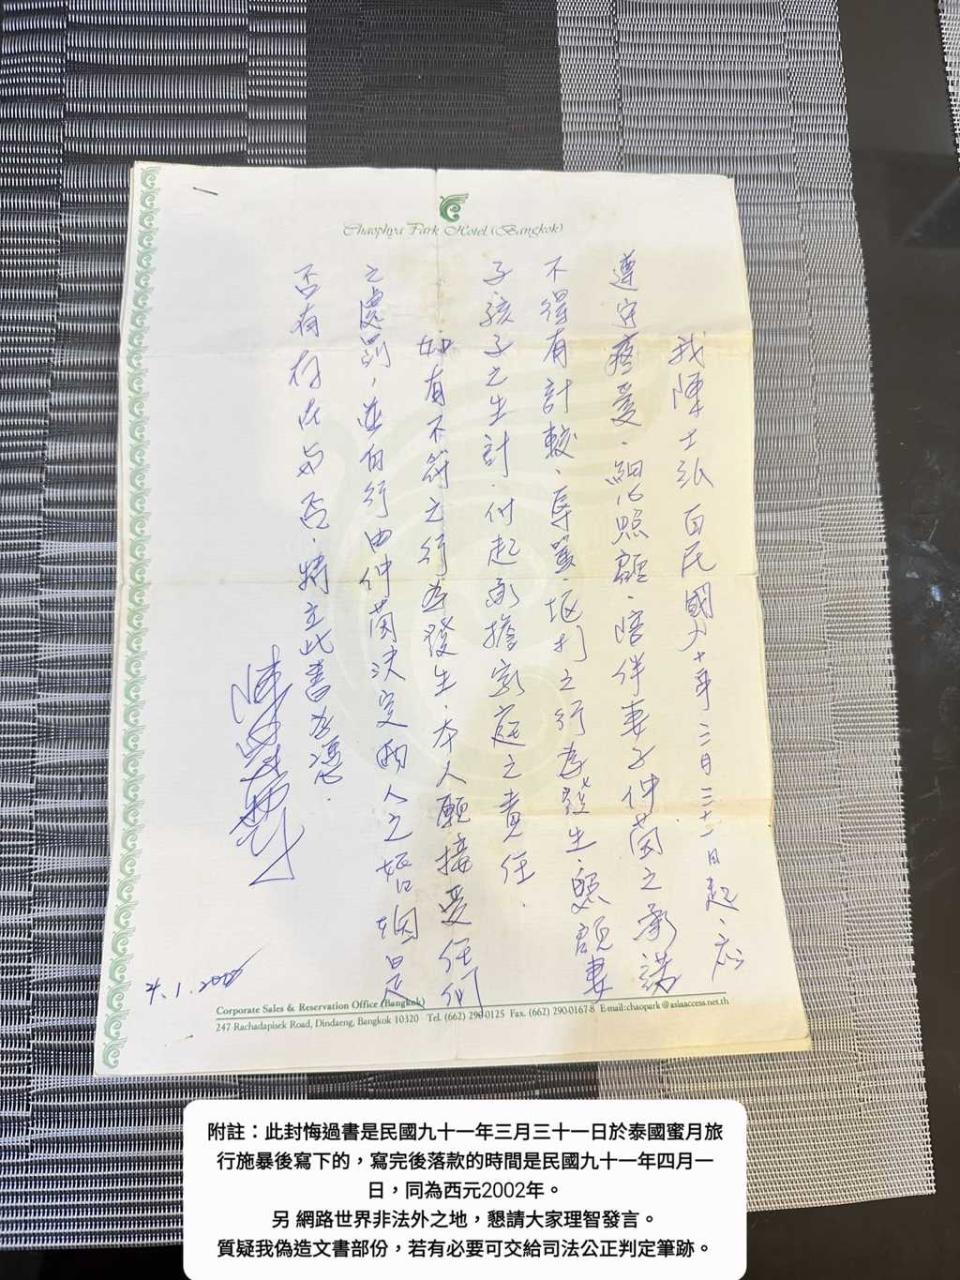 Chaophya Park Hotel (Bangkok)
我陳士泓自民國九十年三月三十一日起、應
遵守疼愛、細心照顧、陪伴妻子仲茵之承諾
不得有計較、辱罵、毆打之行為發生、照顧妻
子孩子之生計、付起承擔家庭之責任.
如有不符之行為發生、本人願接受任何
之處罰、並自行由仲茵決定兩人之婚姻是
否有存在與否、特立此書為憑.
4.1.2002
Corporate Sales & Reservation Office (Bangkok)
247 Rachadapisek Road, Dindaeng, Bangkok 10320 Tel. (662) 290-0125 Fax. (662) 290-0167-8 E-mail:chaopark@asiaaccess.net.th
附註：此封悔過書是民國九十一年三月三十一日於泰國蜜月旅
行施暴後寫下的，寫完後落款的時間是民國九十一年四月一
日，同為西元2002年。
另 網路世界非法外之地，懇請大家理智發言。
質疑我偽造文書部份，若有必要可交給司法公正判定筆跡。